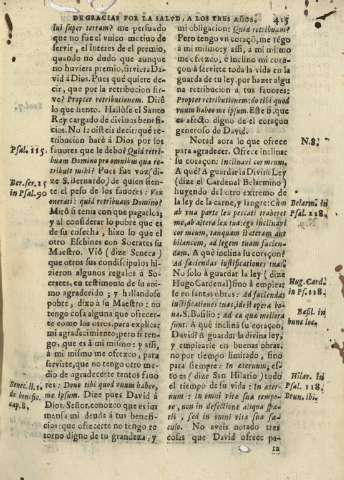 DE GRACIAS POR LA SALVD, A LOS TRES AÑOS. 415
sui super terram? me persuado
que no fue el motivo de
servir, el Interes de el premio,
quando no dudo que aunque
no huviera premio, sirviera David
à Dios. Pues què quiere decir,
que por la retribucion sirve?
Propter retributionem. Diré
lo que siento. Hallòse el Santo
Rey cargado de divinos beneficios.
No le oisteis decir: què retribucion
harè à Dios por los
favores que le debo? Quid retribuam
Domino pro omnibus quæ retribuit
mihi? Pues fue voz (dize
S. Bernardo) de quien siente
el peso de los favores:
quid retribuam Domino?
Mirò si tenia con que pagarlos;
y al considerar lo pobre que es
de su cosecha, hizo lo que el
otro Eschines con Socrates su
Maestro. Viò (dize Seneca)
que otros sus condiscipulos hizieron
algunos regalos à Socrates,
en testimonio de su animo
agradecido; y hallandose
pobre, dixo à su Maestro: no
tengo cosa alguna que ofrecerte
como los otros, para explicar
mi agradecimiento; pero si tengo,
que es à mi mismo; y assi,
à mi mismo me ofrezco, para
servirte, que no tengo otro medio
de agradecerte tantos favores:
Dono tibi quod vnum habeo,
me ipsum. Dize pues David à
Dios. Señor, conozco que es inmensa
mi deuda à tus beneficios;
que ofrecerte no tengo retorno
digno de tu grandeza, y
Psal. 115.
Ber. ser. 15
in Psal. 90
Benec. li. 1.
de benefic.
cap. 8.
mi obligacion: Quid retribuam?
Pero tengo vn coraçon, me tengo
à mi mismo; y assi, à mi mismo
me ofrezco, è inclino mi coraçon
à servirte toda la vida en la
guarda de tu ley, por hazer alguna
retribucion à tus favores:
Propter retributionem: do tibi quod
vnum habeo me ipsum. Este si, que
es afecto digno de el coraçon
generoso de David.
Notad aora lo que ofrece
para agradecer. Ofrece inclinar
su coraçon: inclinavi cor meum,
A què? A guardar la Divina Ley
(dize el Cardenal Belarmino)
huyendo del otro extremo de
la ley de la carne, y sangre: Cùm
ab vna parte lex peccati traheret
me, ab altera lex tua; ego inclinavi
cor meum, tanquam libram aut
bilancem, ad legem tuam faciendam.
A què inclina su coraçon?
ad faciendas iustificationes tuas.
No solo à guardar la ley (dize
Hugo Cardenal) sino à emplearse
en santas obras: ad faciendas
iustificationes tuas, id est opera bona.
S. Basilio: ad ea quæ meliora
sunt. A què inclina su coraçon
David? à guardar la divina ley,
y emplearse en buenas obras,
no por tiempo limitado, sino
para siempre: In æternum, esto
es (dize San Hilario) todo
el tiempo de su vida: In æternum:
in omni vitæ suæ tempore,
non in defectione aliqua spatij,
sed in omni vitæ suæ sæculo.
No aveis notado tres
cosas que David ofrece pa-
ra
N. 8.
Belarm. in
Psal. 118.
Hug. Card.
in Ps. 118.
Basil. in
hunc loc.
Hilar. in
Psal. 118.
Brun. ibi.